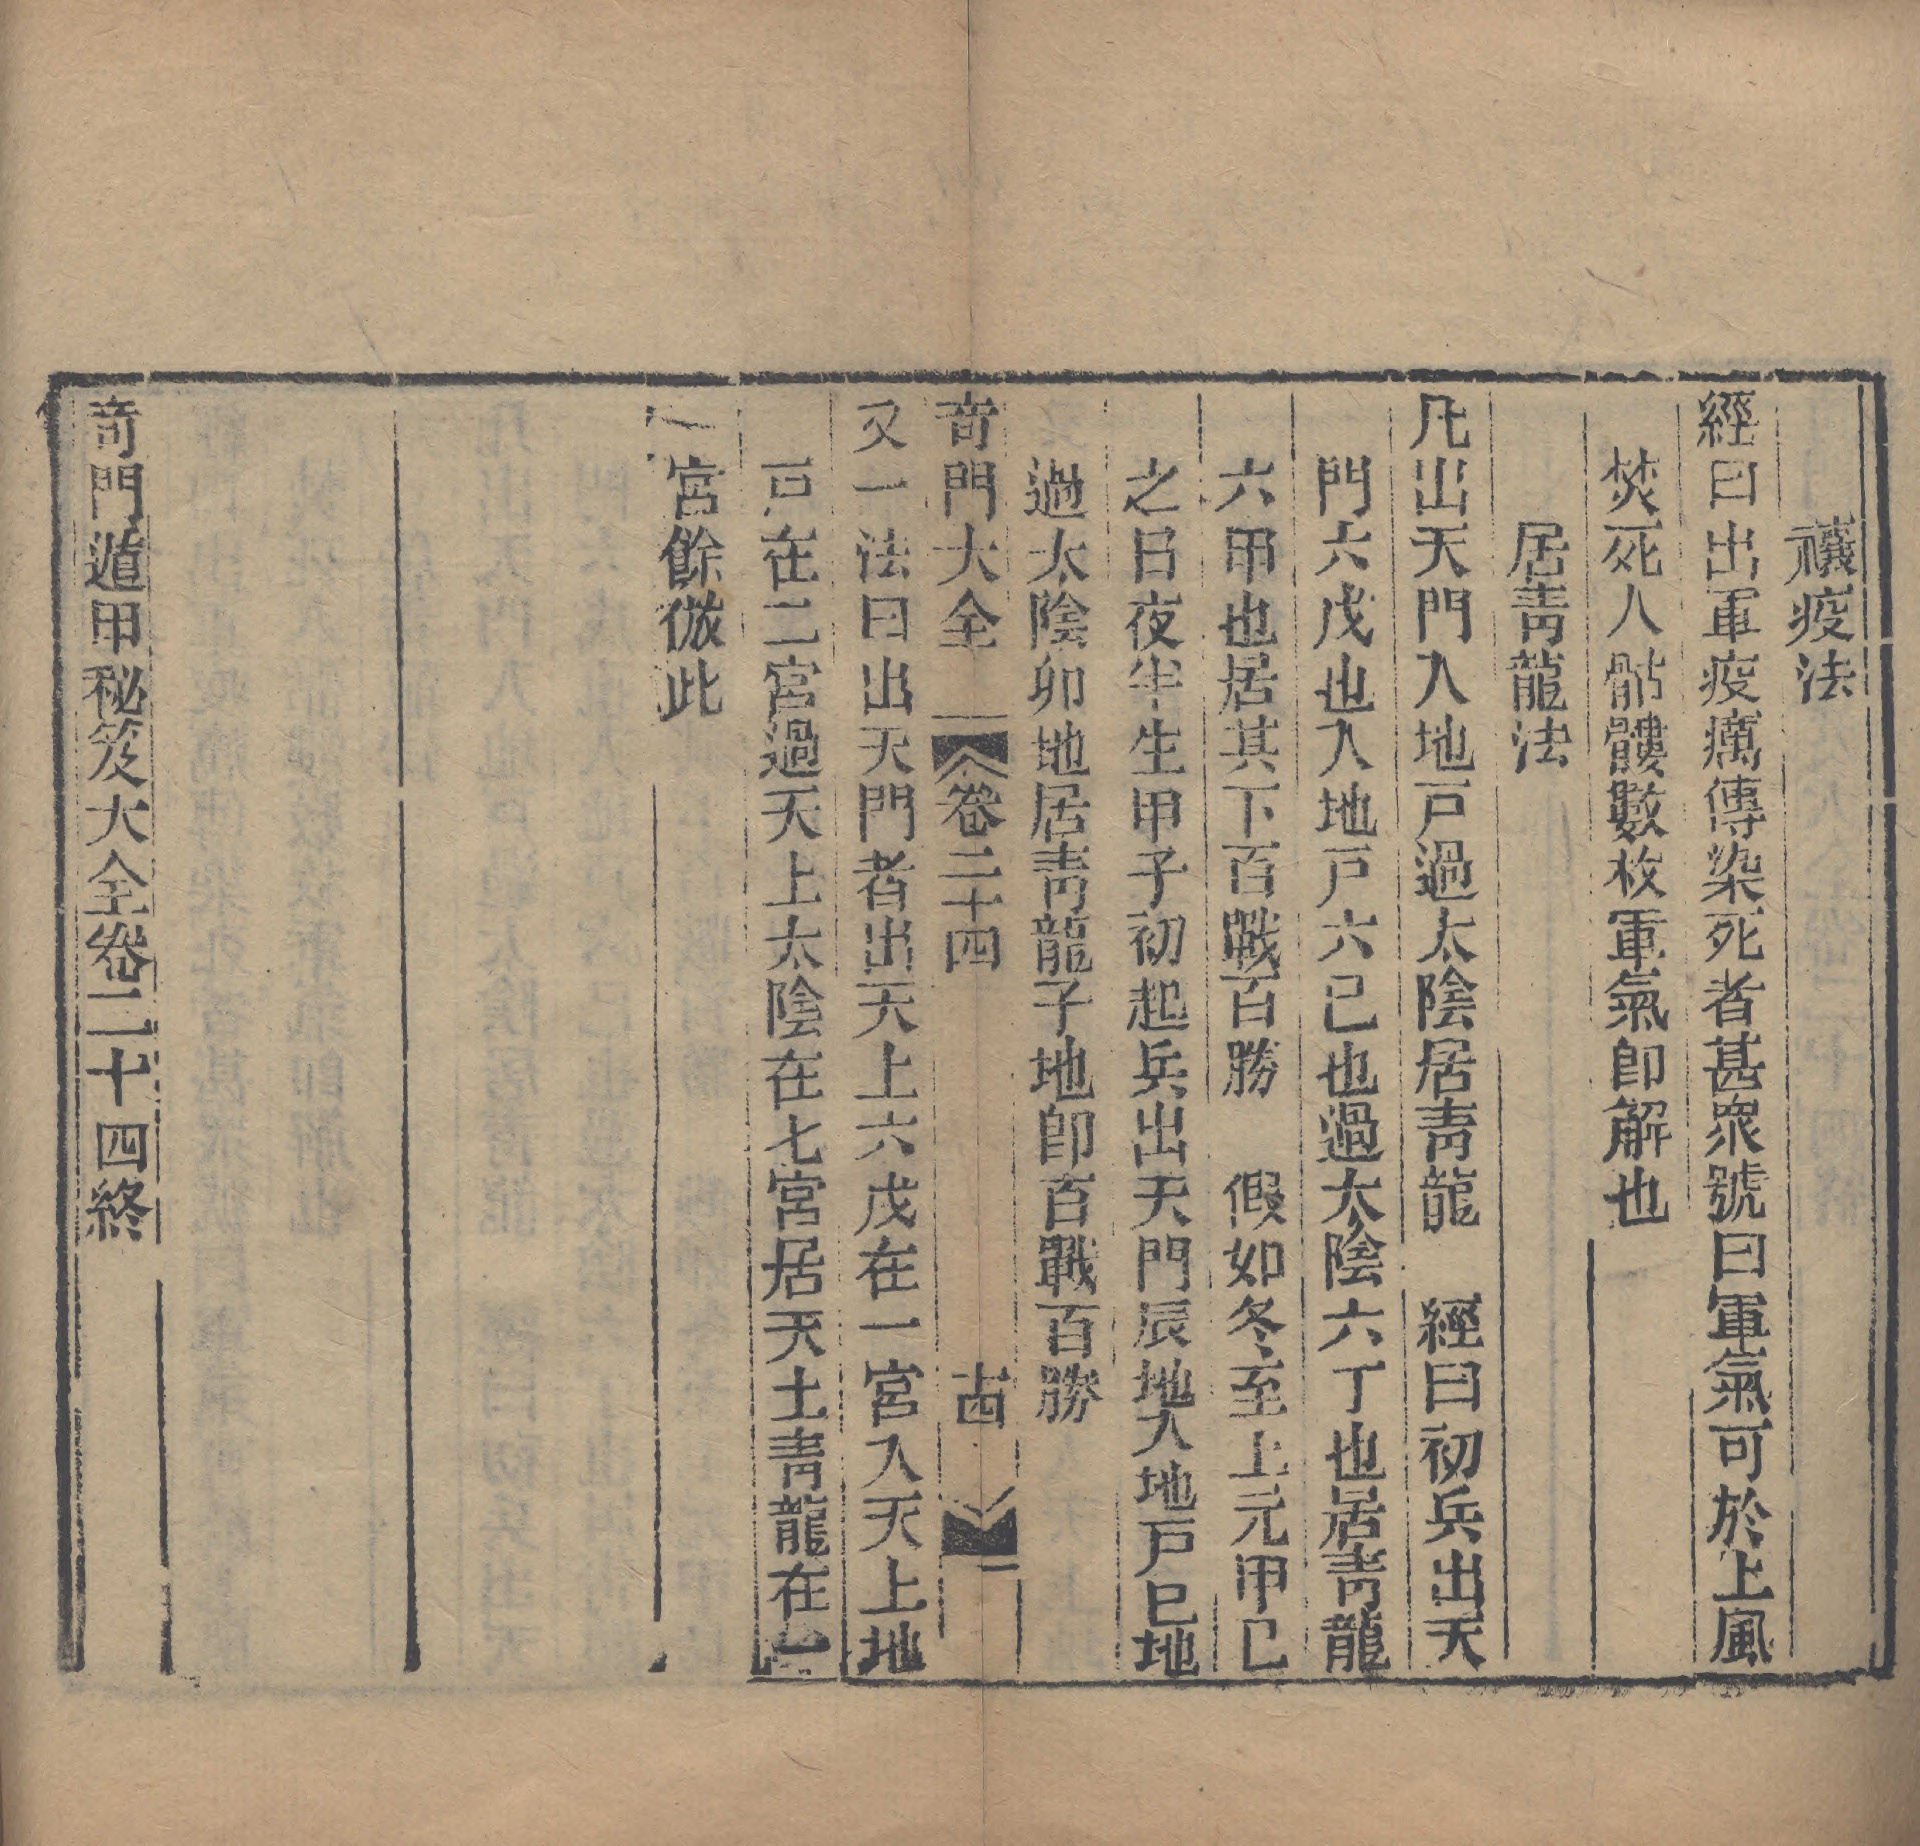 禳疫法
經曰出軍疫癘傳染死者甚眾號曰軍氣可於上風
焚死人骷髏數枚軍氣卽解也
居靑龍法
凡出天門入地戸過太陰居靑龍　經曰初兵出天
門六戊也入地戸六己也過太陰六丁也居靑龍
六甲也居其下百戰百勝　假如冬至上元甲己
之日夜半生甲子初起兵出天門辰地入地戸巳地
過太陰卯地居靑龍子地卽百戰百勝
奇門大全　卷二十四　古四
又一法曰出天門者出天上六戊在一宮入天上地
戸在二宮過天上太陰在七宮居天土靑龍在一
一宮餘倣此
奇門遁甲秘笈大全卷二十四終